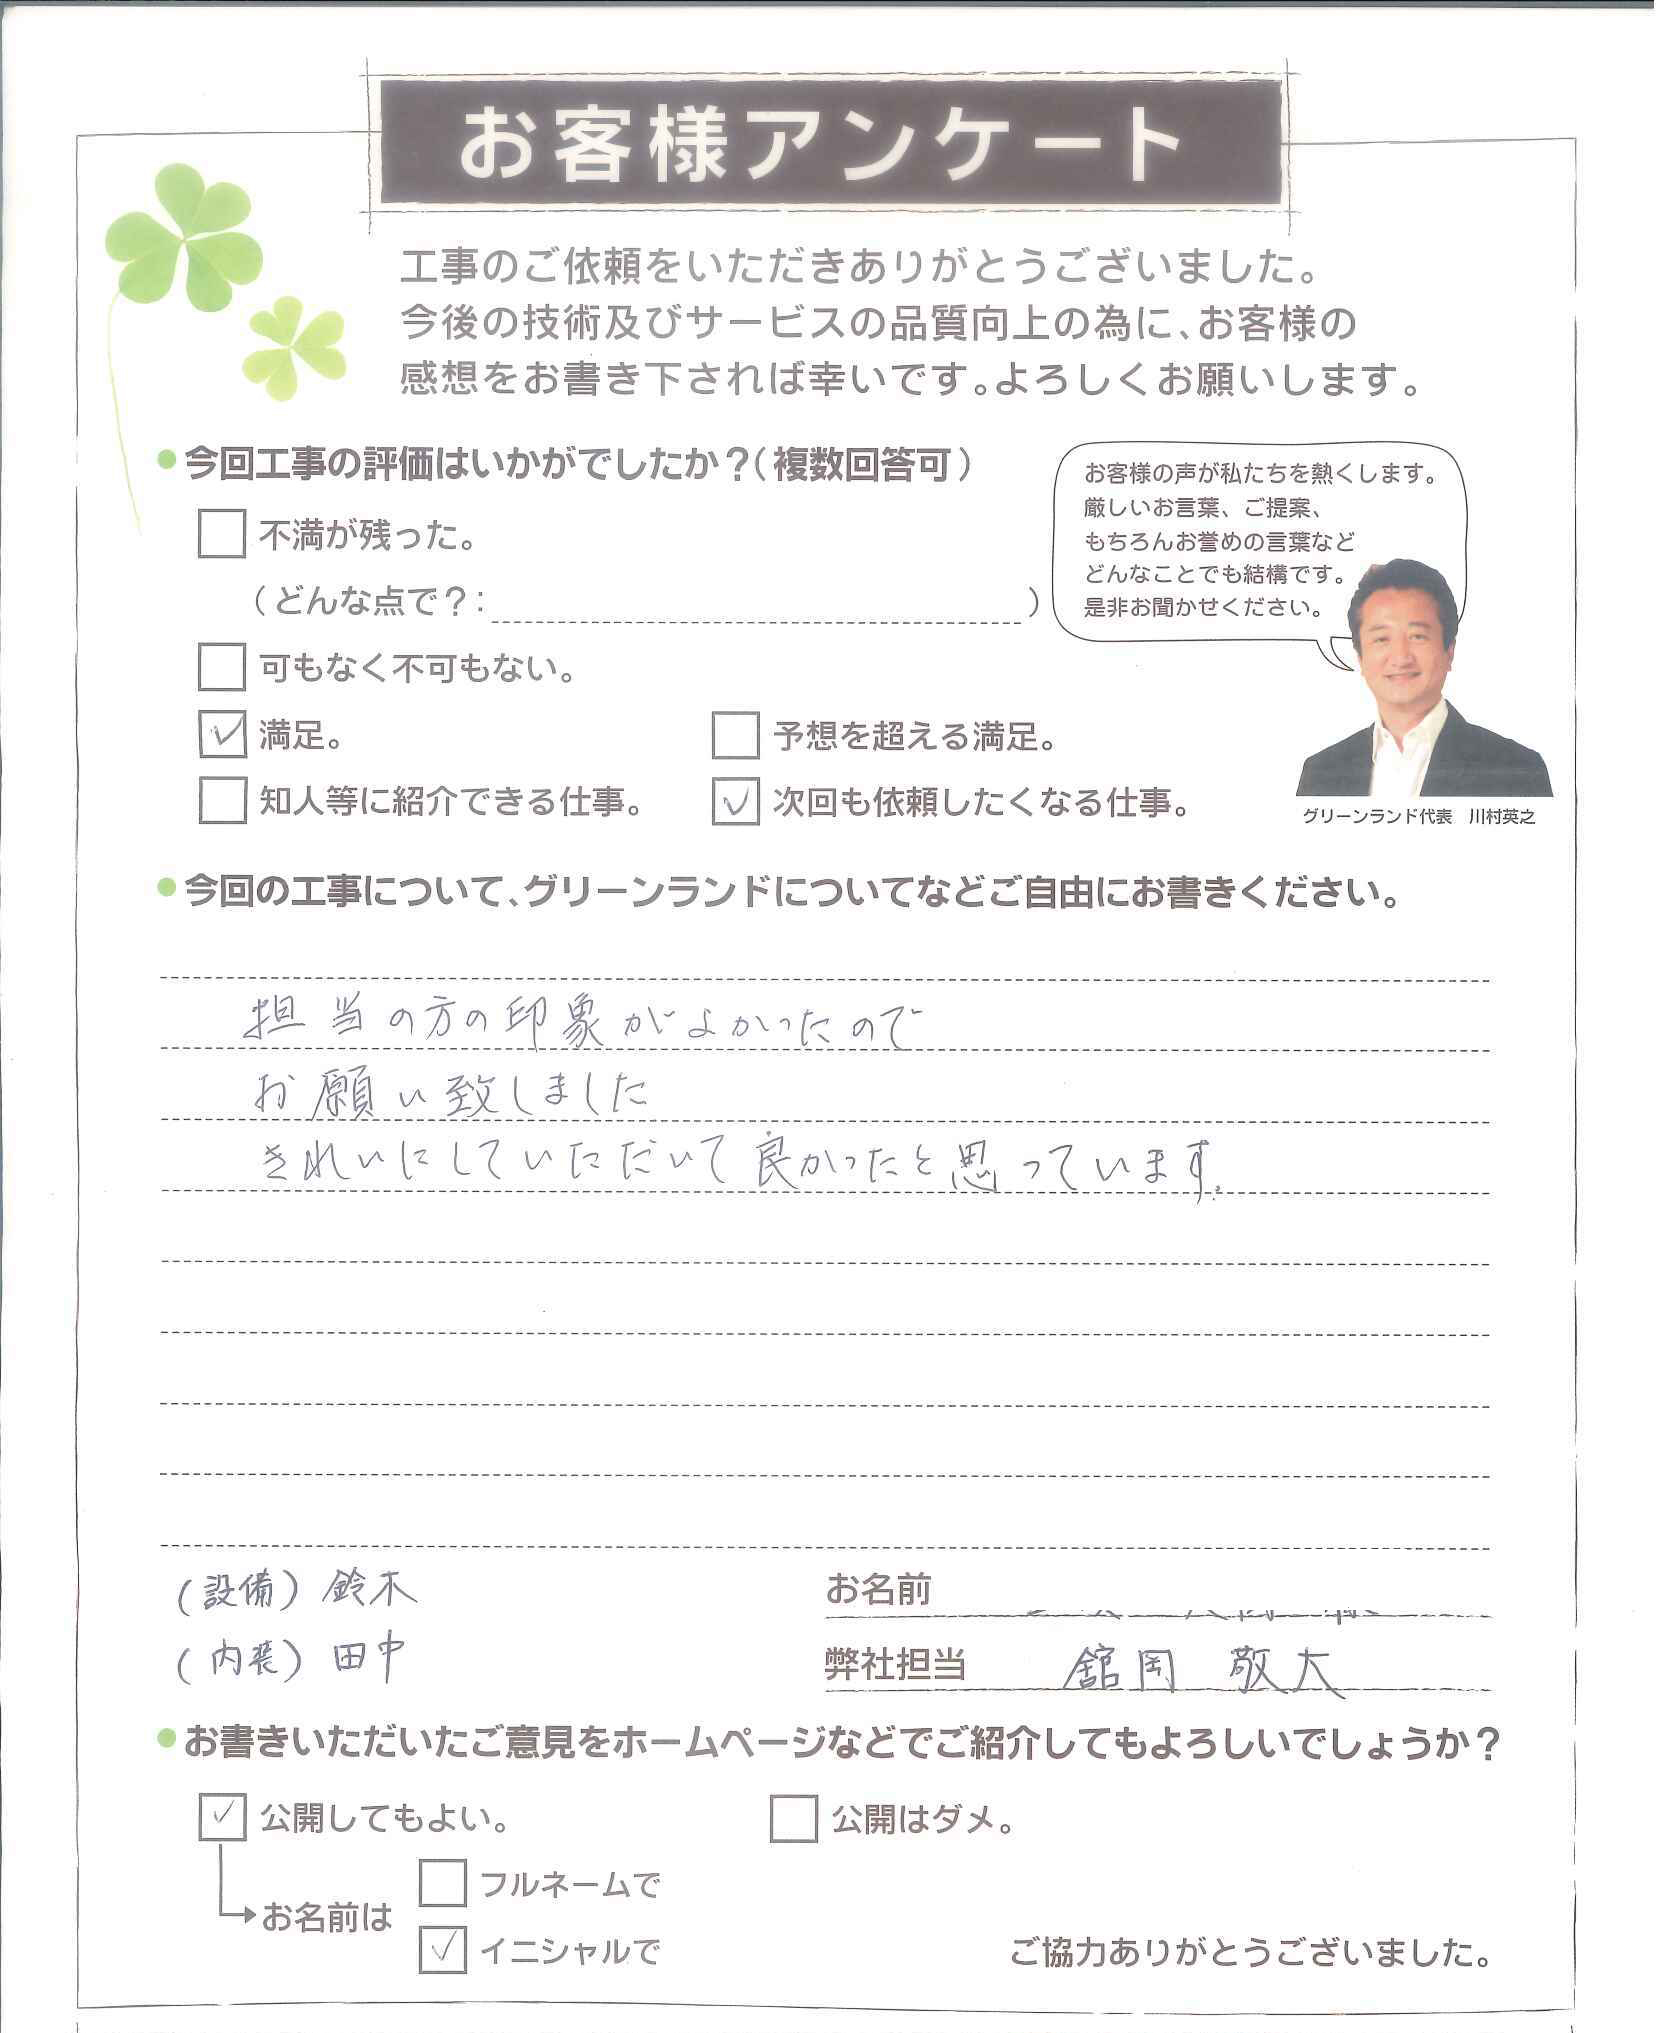 お客様アンケート
工事のご依頼をいただきありがとうございました。
今後の技術及びサービスの品質向上の為に、お客様の
感想をお書き下されば幸いです。よろしくお願いします。
今回工事の評価はいかがでしたか？（複数回答可）
不満が残った。
（どんな点で？：                    ）
可もなく不可もない。
満足。
予想を超える満足。
知人等に紹介できる仕事。
次回も依頼したくなる仕事。
お客様の声が私たちを熱くします。
厳しいお言葉、ご提案、
もちろんお誉めの言葉など
どんなことでも結構です。
是非お聞かせください。
グリーンランド代表　川村英之
今回の工事について、グリーンランドについてなどご自由にお書きください。
担当の方の印象がよかったので
お願い致しました
きれいにしていただいて良かったと思っています。
(設備) 鈴木
(内装) 田中
お名前
弊社担当 舘岡 敬太
お書きいただいたご意見をホームページなどでご紹介してもよろしいでしょうか？
公開してもよい。
公開はダメ。
お名前は
フルネームで
イニシャルで
ご協力ありがとうございました。